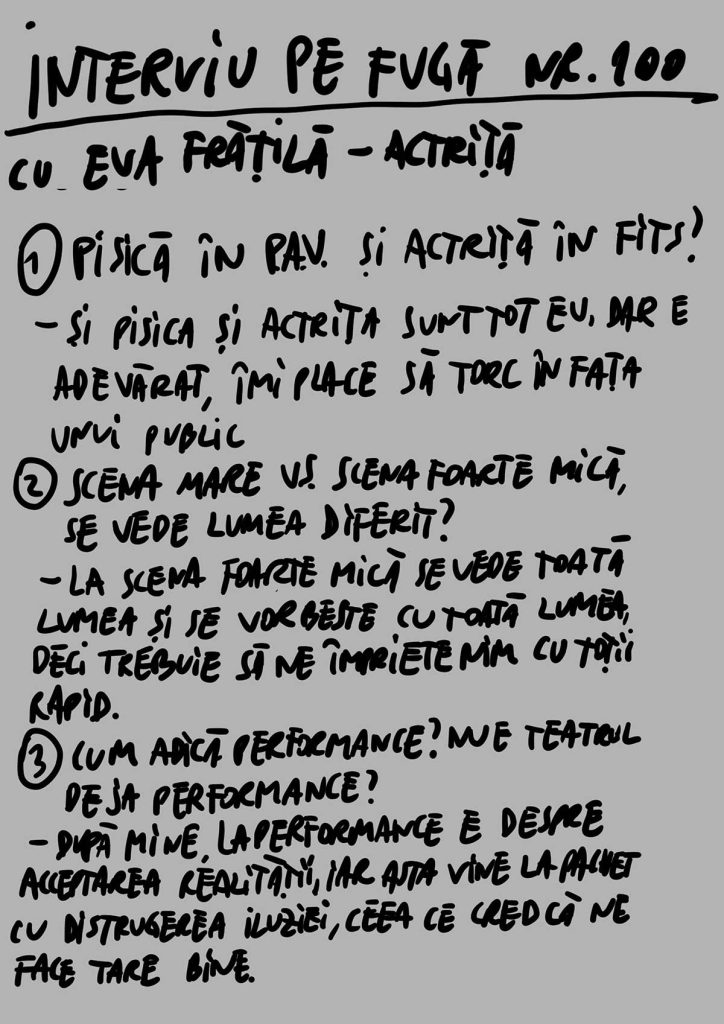 INTERVIU PE FUGĂ NR. 100
CU EVA FRĂȚILĂ - ACTRIȚĂ
1 PISICĂ ÎN P.A.V. ȘI ACTRIȚĂ ÎN FITS?
- ȘI PISICA ȘI ACTRIȚA SUNT TOT EU, DAR E
ADEVĂRAT, ÎMI PLACE SĂ TORC ÎN FAȚA
UNUI PUBLIC
2 SCENA MARE VS. SCENA FOARTE MICĂ,
SE VEDE LUMEA DIFERIT?
- LA SCENA FOARTE MICĂ SE VEDE TOATĂ
LUMEA ȘI SE VORBESTE CU TOATĂ LUMEA,
DECI TREBUIE SĂ NE ÎMPRIETENIM CU TOȚII
RAPID.
3 CUM ADICĂ PERFORMANCE? NU E TEATRUL
DEJA PERFORMANCE?
- DUPĂ MINE, LA PERFORMANCE E DESPRE
ACCEPTAREA REALITĂȚII, IAR ASTA VINE LA PACHET
CU DISTRUGEREA ILUZIEI, CEEA CE CRED CĂ NE
FACE TARE BINE.